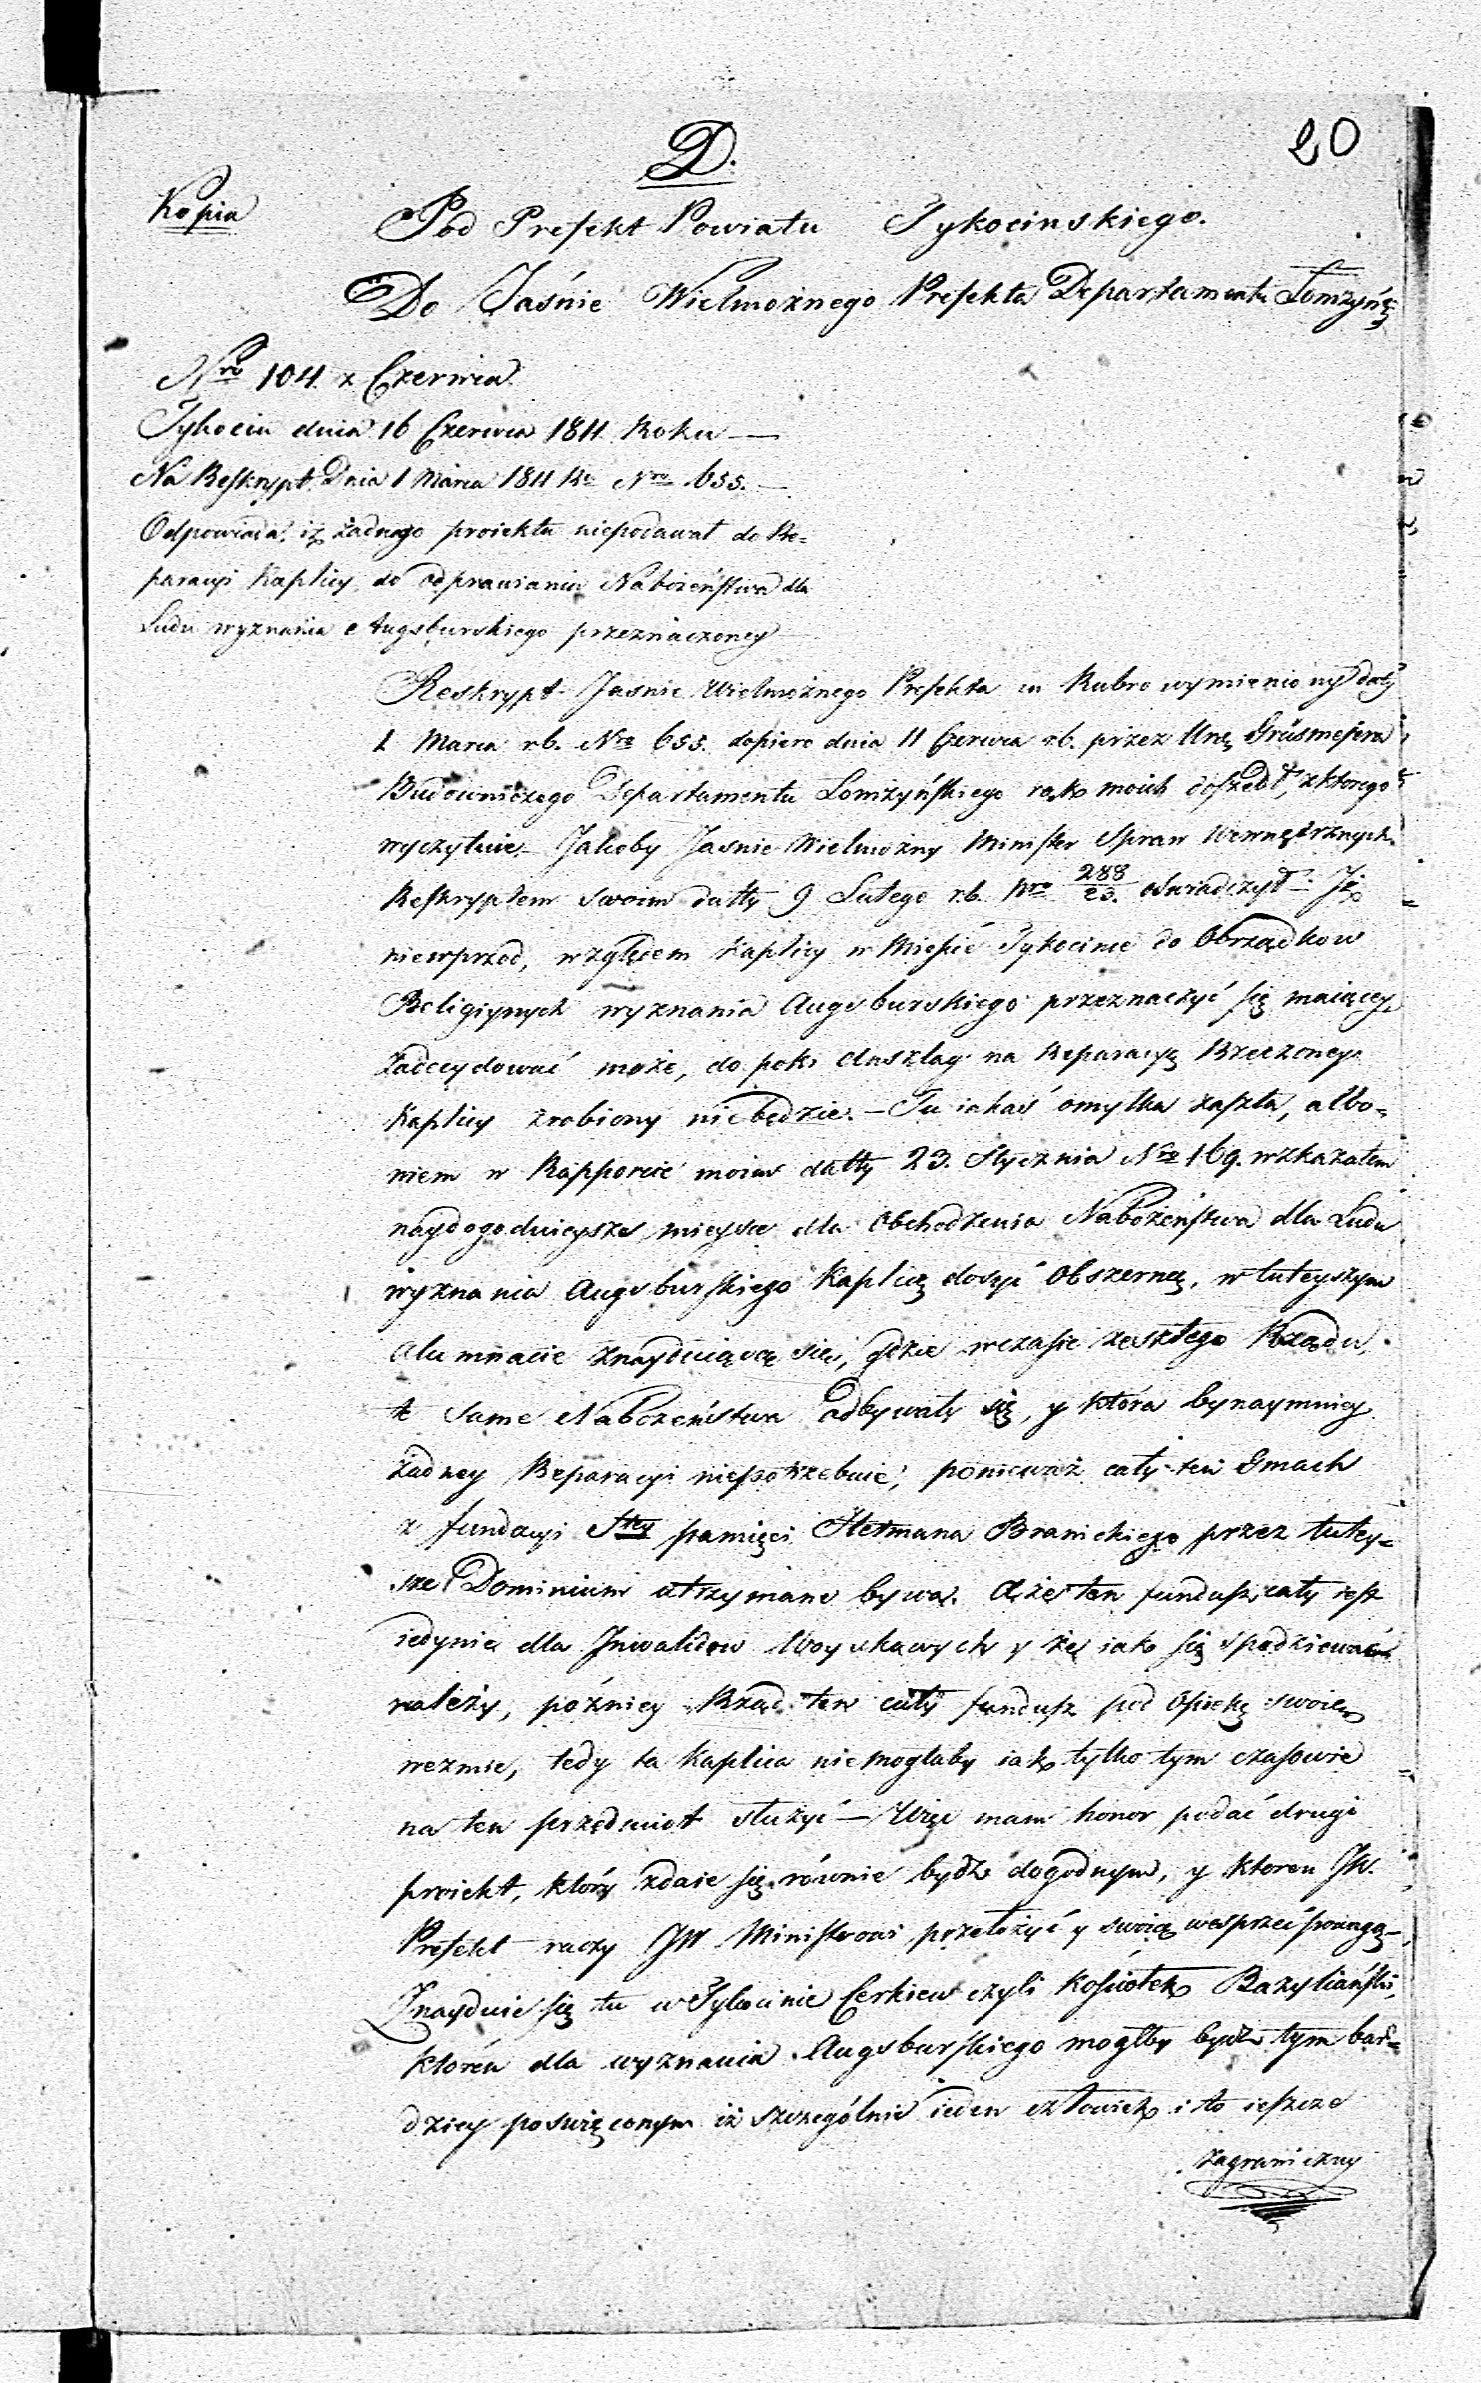 20
D.
Kopia
Pod Prefekt Powiatu Tykocinskiego.
Do Jaśnie Wielmożnego Prefekta Departamentu Łomżyńs:
Nro 104 x Czerwca.
Tykocin dnia 16 Czerwca 1811 Roku —
Na Reskrypt Dnia 1 Marca 1811 Ro Nro 655. —
Odpowiada, iż żadnego proiektu niepodawał do Re=
paracyi Kaplicy do odprawiania Nabożeństwa dla
Ludu wyznania Augsburskiego przeznaczoney
Reskrypt Jasnie Wielmożnego Prefekta in Rubro wymieniony daty
1 Marca r.b. Nro 655. dopiero dnia 11 Czerwca r.b. przez
Budowniczego Departamentu Łomżyńskiego rąk moich doszedł, z ktorego
wyczytuię. Jakoby Jasnie Wielmożny Minister Spraw Wewnętrznych
Reskryptem swoim datty 9 Lutego r.b. Nro 288/23. oświadczył: Iż
niewprzod, względem Kaplicy w Mieście Tykocinie do Obrządkow
Religiynych wyznania Augsburskiego przeznaczyć się maiącey
zadecydować może, do poki Anszlag na Reparacyą Rzeczoney
Kaplicy zrobiony niebędzie. — Tu iakaś omyłka zaszła, albo=
niem w Rapporcie moim datty 23. Stycznia Nro 169. wskazałem
naydogodnieysze mieysce dla Obchodzenia Nabożeństwa dla Ludu
wyznania Augsburskiego Kaplicę dosyć Obszerną, w tuteyszym
Alumnacie znayduiącą się, gdzie wczasie zeszłego Rządu,
te same Nabożeństwa odbywały się, y która bynaymniey
żadney Reparacyi niepotrzebuie, ponieważ cały ten Gmach
z fundacyi Stey pamięci Hetmana Branickiego przez tutey=
sze Dominium utrzymane bywa. A że ten fundusz cały iest
iedynie dla Inwalidow Woyskowych y że, iako się spodziewać
należy, poźniey Rząd ten cały fundusz pod Opiekę swoię
wezmie, tedy ta Kaplica niemogłaby iak tylko tym czasowie
na ten przedmiot służyć — Więc mam honor podać drugi
proiekt, który zdaie się równie bydź dogodnym, y ktoren JW.
Prefekt raczy JW Ministrowi przełożyć y swoią wesprzeć powagą —
Znayduie się tu w Tykocinie Cerkiew czyli Kościołek Bazyliański,
ktorén dla wyznania Augsburskiego mogłby bydź tym bar=
dziey poswięconym iż szczególnie ieden człowiek i to ieszcze
zagraniczny